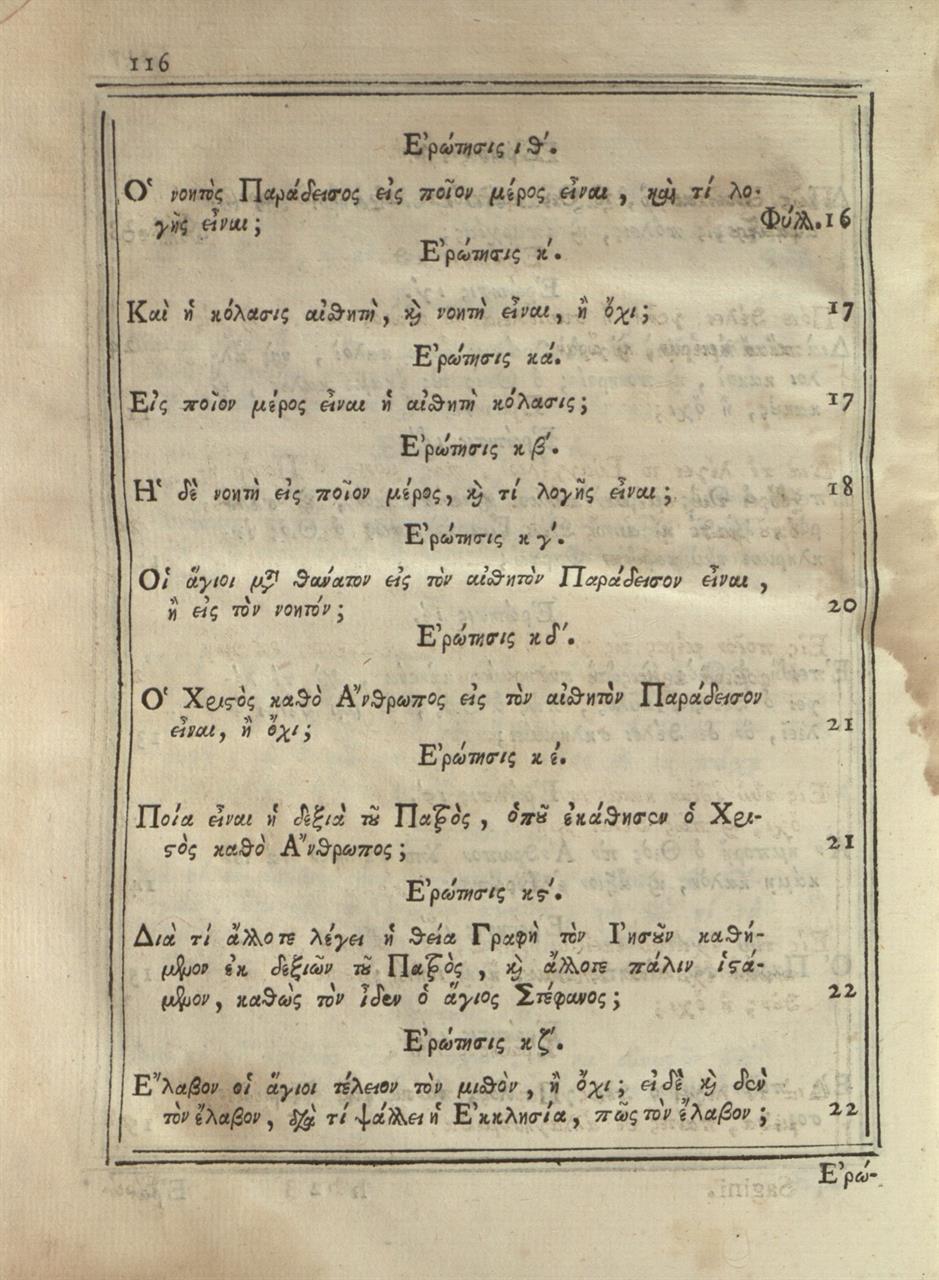 116
Ἐρώτησις ιθ'.
Ὁ νοητὸς Παράδεισος εἰς ποῖον μέρος εἶναι, καὶ τί λο-
γῆς εἶναι; Φύλλ. 16
Ἐρώτησις κ'.
Καὶ ἡ κόλασις αἰσθητὴ, καὶ νοητὴ εἶναι, ἢ ὄχι; 17
Ἐρώτησις κά.
Εἰς ποῖον μέρος εἶναι ἡ αἰσθητὴ κόλασις; 17
Ἐρώτησις κβ'.
Ἡ δὲ νοητὴ εἰς ποῖον μέρος, καὶ τί λογῆς εἶναι; 18
Ἐρώτησις κγ'.
Οἱ ἅγιοι μετὰ θάνατον εἰς τὸν αἰσθητὸν Παράδεισον εἶναι,
ἢ εἰς τὸν νοητόν; 20
Ἐρώτησις κδ'.
Ὁ Χριστὸς καθὸ Ἄνθρωπος εἰς τὸν αἰσθητὸν Παράδεισον
εἶναι, ἢ ὄχι; 21
Ἐρώτησις κέ.
Ποία εἶναι ἡ δεξιὰ τοῦ Πατρὸς, ὁποῦ ἐκάθησεν ὁ Χρι-
στὸς καθὸ Ἄνθρωπος; 21
Ἐρώτησις κϛ'.
Διὰ τί ἄλλοτε λέγει ἡ θεία Γραφὴ τὸν Ἰησοῦν καθή-
μενον ἐκ δεξιῶν τοῦ Πατρὸς, καὶ ἄλλοτε πάλιν ἱστά-
μενον, καθὼς τὸν ἶδεν ὁ ἅγιος Στέφανος; 22
Ἐρώτησις κζ'.
Ἔλαβον οἱ ἅγιοι τέλειον τὸν μισθὸν, ἢ ὄχι; εἰδὲ καὶ δὲν
τὸν ἔλαβον, διὰ τί ψάλλει ἡ Ἐκκλησία, πῶς τὸν ἔλαβον; 22
Ἐρώ-